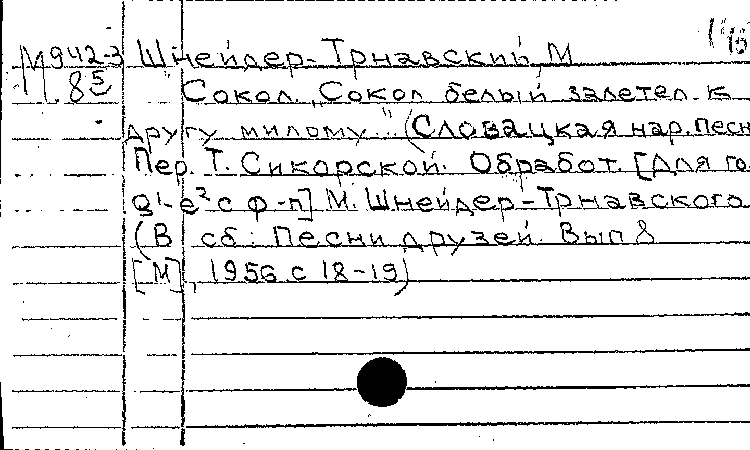 М942-3 Шнейдер-Трнавский, М
85 Сокол. „Сокол белый залетел к
другу милому" (Словацкая нар. песн
Пер. Т. Сикорской. Обработ. [Для го
d¹-e² с ф-п] М. Шнейдер-Трнавского
(В сб: Песни друзей. Вып 8
[М], 1956 с 18-19)